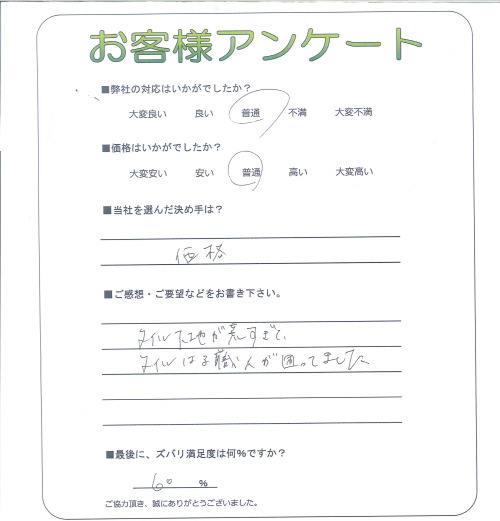 お客様アンケート
■弊社の対応はいかがでしたか？
大変良い 良い 普通 不満 大変不満
■価格はいかがでしたか？
大変安い 安い 普通 高い 大変高い
■当社を選んだ決め手は？
価格
■ご感想・ご要望などをお書き下さい。
タイル下地が荒すぎて、
タイルはる職人が困ってました
■最後に、ズバリ満足度は何％ですか？
60 ％
ご協力頂き、誠にありがとうございました。